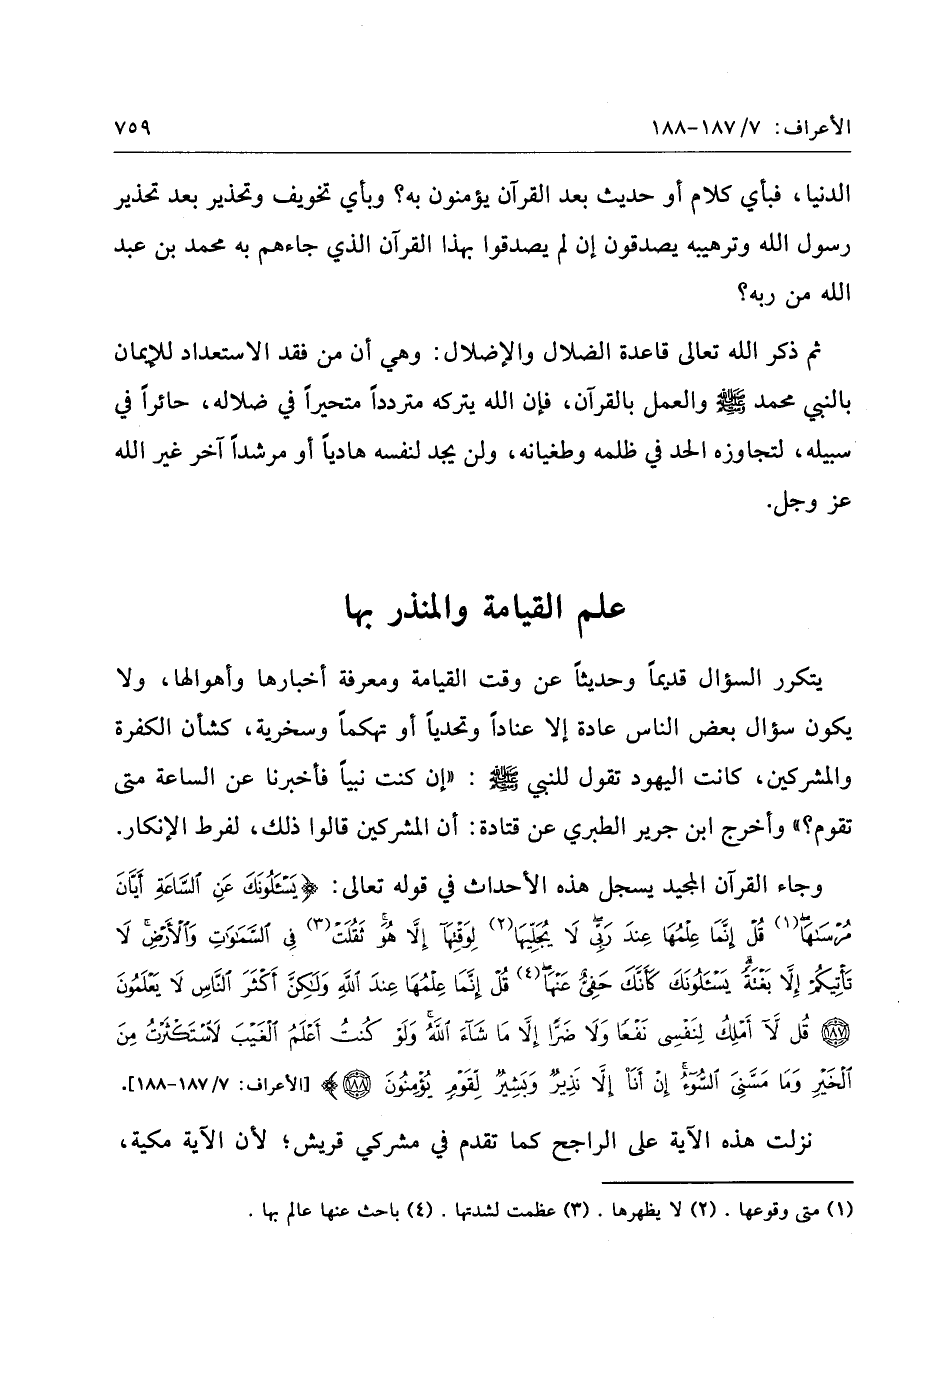 الأعراف: ٧/ ١٨٧-١٨٨ ٧٥٩
الدنيا، فبأي كلام أو حديث بعد القرآن يؤمنون به؟ وبأي تخويف وتحذير بعد تحذير
رسول الله وترهيبه يصدقون إن لم يصدقوا بهذا القرآن الذي جاءهم به محمد بن عبد
الله من ربه؟
ثم ذكر الله تعالى قاعدة الضلال والإضلال: وهي أن من فقد الاستعداد للإيمان
بالنبي محمد ﷺ والعمل بالقرآن، فإن الله يتركه متردداً متحيراً في ضلاله، حائراً في
سبيله، لتجاوزه الحد في ظلمه وطغيانه، ولن يجد لنفسه هادياً أو مرشداً آخر غير الله
عز وجل.
علم القيامة والمنذر بها
يتكرر السؤال قديماً وحديثاً عن وقت القيامة ومعرفة أخبارها وأهوالها، ولا
يكون سؤال بعض الناس عادة إلا عناداً وتحدياً أو تهكماً وسخرية، كشأن الكفرة
والمشركين، كانت اليهود تقول للنبي ﷺ : «إن كنت نبياً فأخبرنا عن الساعة متى
تقوم؟» وأخرج ابن جرير الطبري عن قتادة: أن المشركين قالوا ذلك، لفرط الإنكار.
وجاء القرآن المجيد يسجل هذه الأحداث في قوله تعالى: ﴿يَسْـَٔلُونَكَ عَنِ ٱلسَّاعَةِ أَيَّانَ
مُرْسَىٰهَاۖ(١) قُلْ إِنَّمَا عِلْمُهَا عِندَ رَبِّىۖ لَا يُجَلِّيهَا(٢) لِوَقْتِهَآ إِلَّا هُوَۚ ثَقُلَتْ(٣) فِى ٱلسَّمَٰوَٰتِ وَٱلْأَرْضِۚ لَا
تَأْتِيكُمْ إِلَّا بَغْتَةًۗ يَسْـَٔلُونَكَ كَأَنَّكَ حَفِىٌّ عَنْهَاۖ(٤) قُلْ إِنَّمَا عِلْمُهَا عِندَ ٱللَّهِ وَلَٰكِنَّ أَكْثَرَ ٱلنَّاسِ لَا يَعْلَمُونَ
١٨٧ قُل لَّآ أَمْلِكُ لِنَفْسِى نَفْعًا وَلَا ضَرًّا إِلَّا مَا شَآءَ ٱللَّهُۚ وَلَوْ كُنتُ أَعْلَمُ ٱلْغَيْبَ لَٱسْتَكْثَرْتُ مِنَ
ٱلْخَيْرِ وَمَا مَسَّنِىَ ٱلسُّوٓءُۚ إِنْ أَنَا۠ إِلَّا نَذِيرٌ وَبَشِيرٌ لِّقَوْمٍ يُؤْمِنُونَ ١٨٨﴾ [الأعراف: ٧/ ١٨٧-١٨٨].
نزلت هذه الآية على الراجح كما تقدم في مشركي قريش؛ لأن الآية مكية،
(١) متى وقوعها . (٢) لا يظهرها . (٣) عظمت لشدتها . (٤) باحث عنها عالم بها .